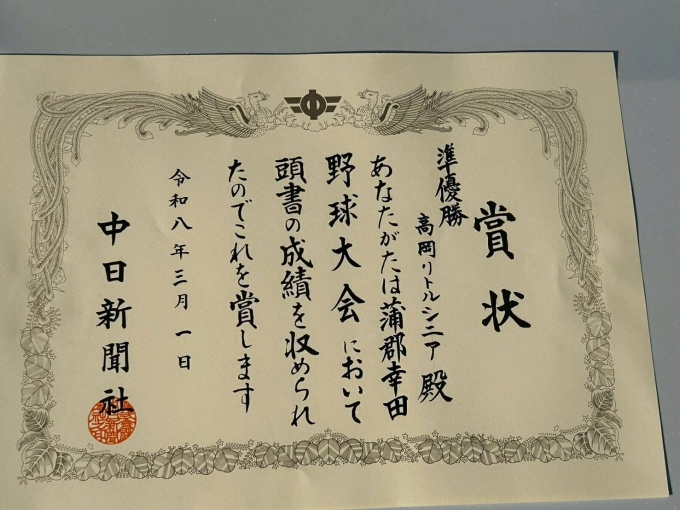 賞状
準優勝
高岡リトルシニア 殿
あなたがたは蒲郡幸田
野球大会において
頭書の成績を収められ
たのでこれを賞します
令和八年三月一日
中日新聞社